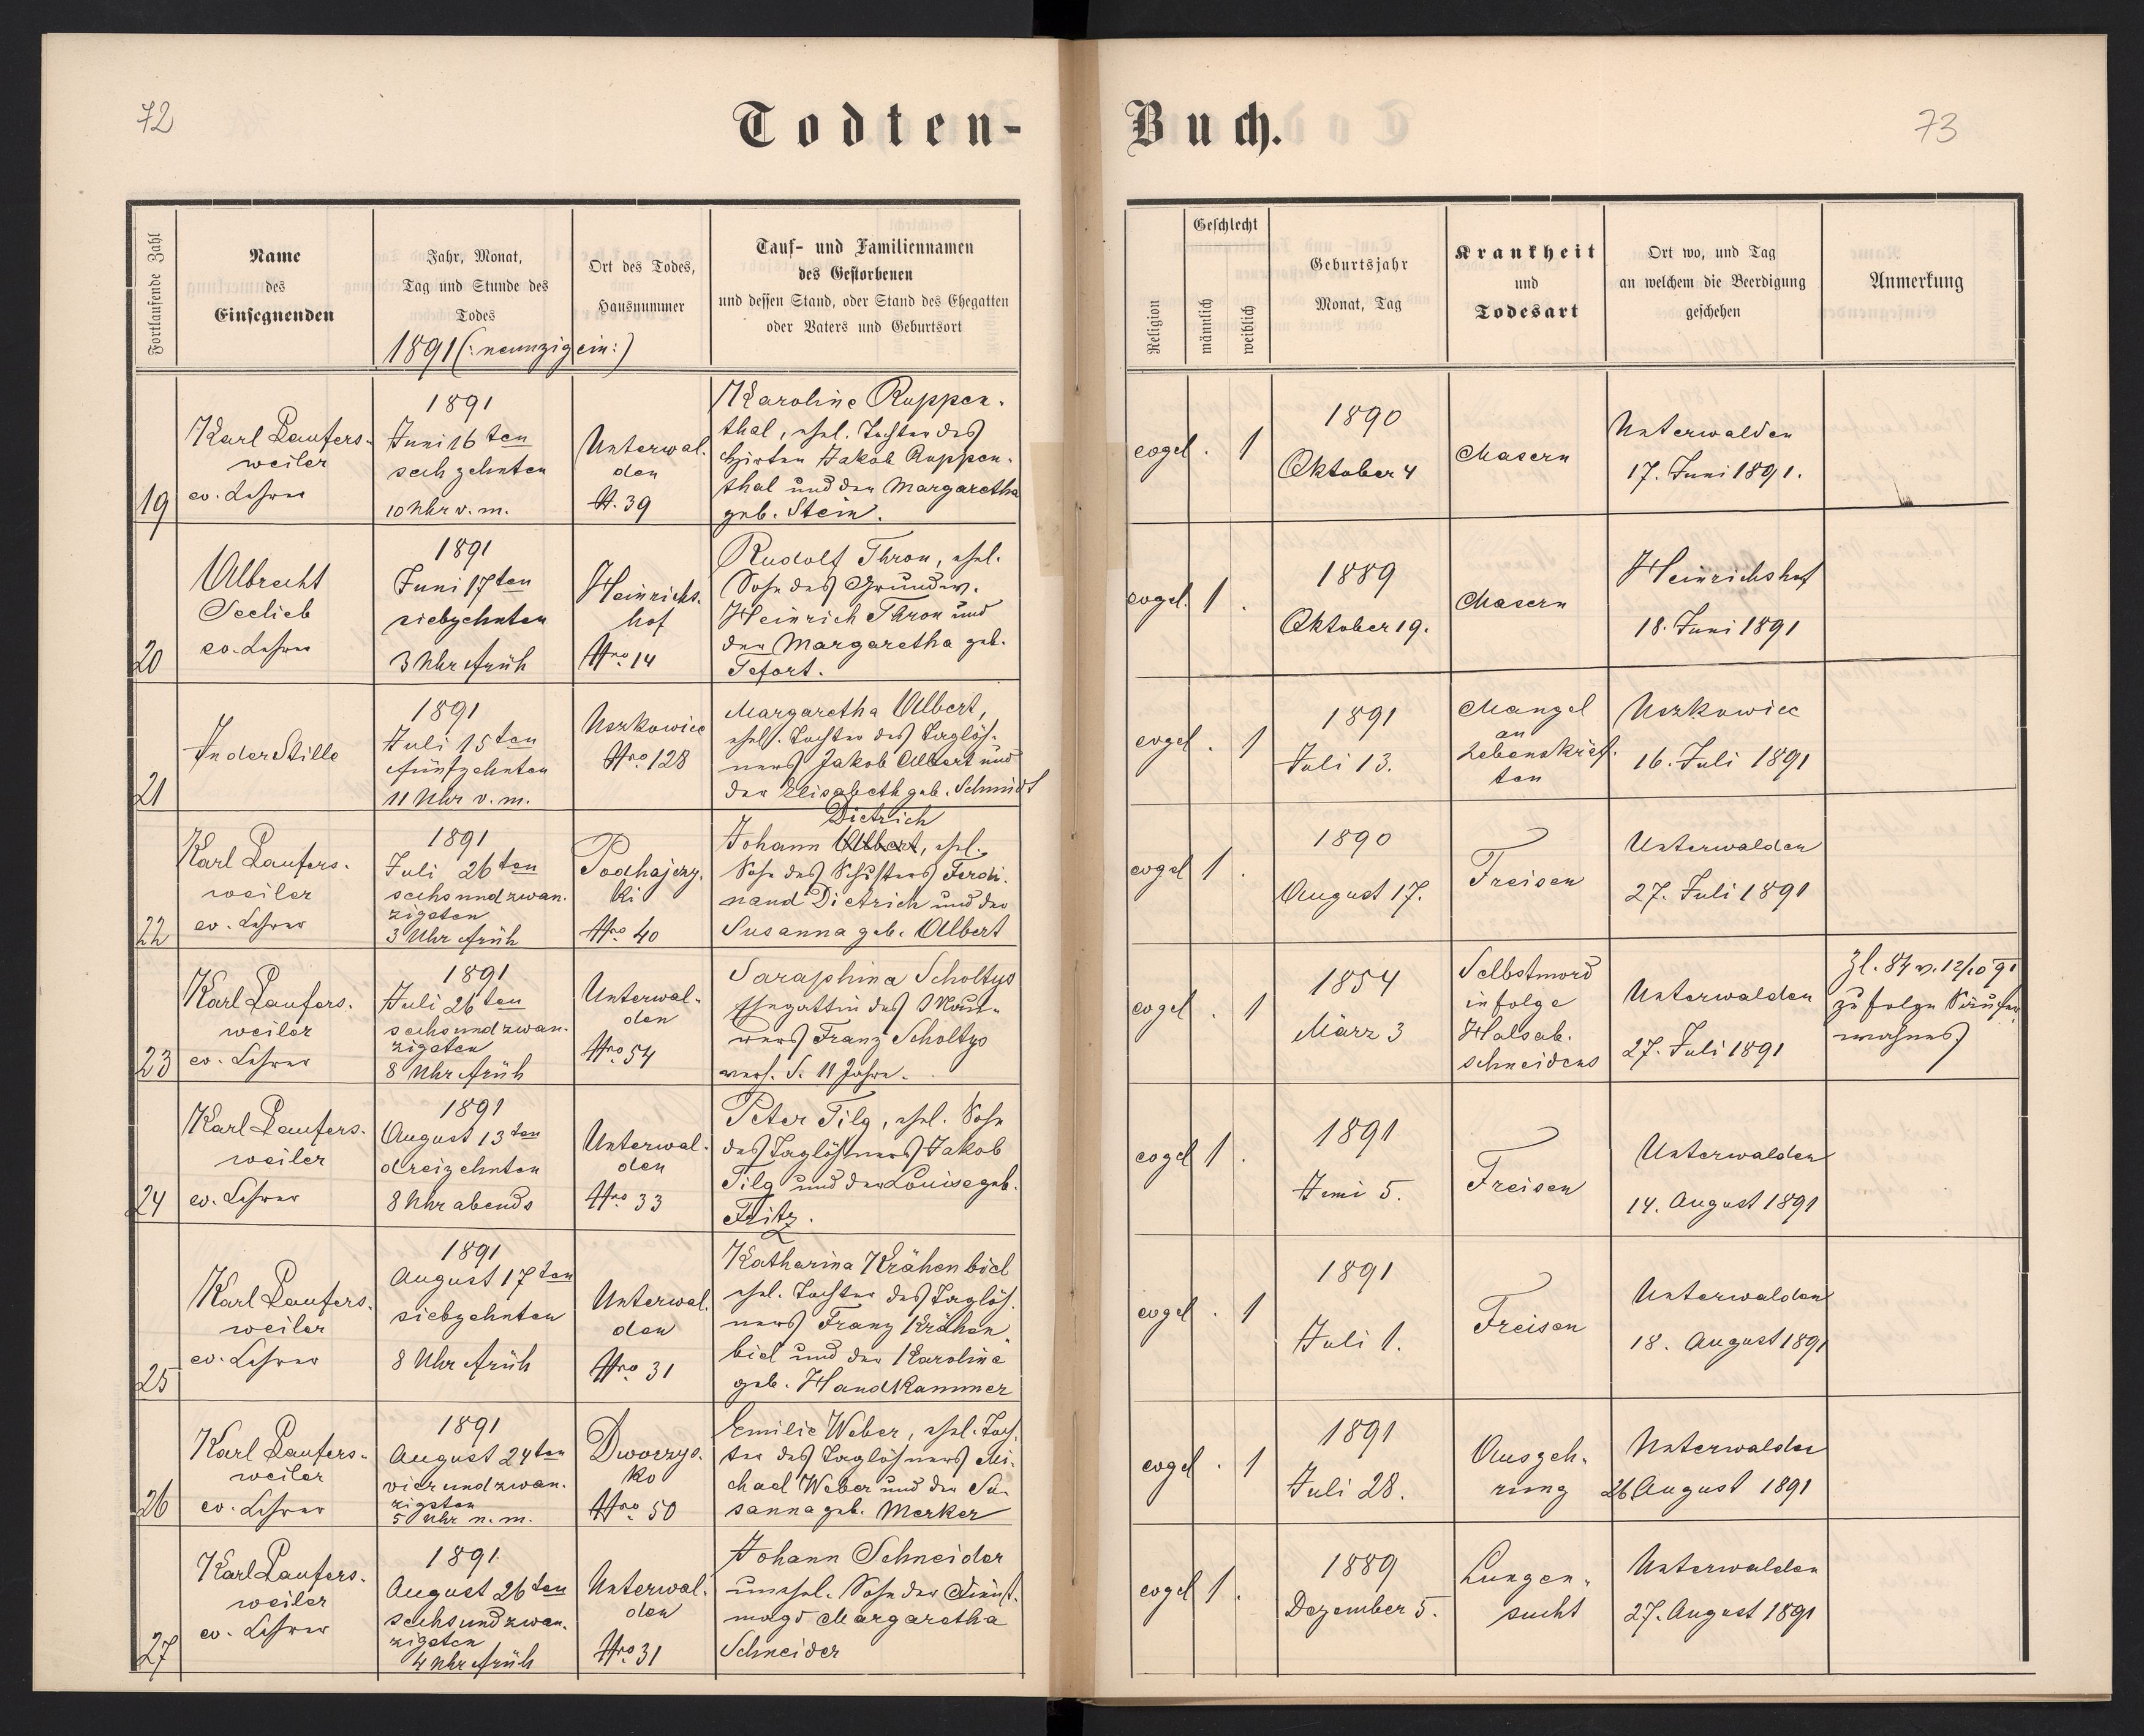 72
Todten-
Buch.
73
Fortlaufende Zahl
Name
des
Einsegnenden
Jahr, Monat,
Tag und Stunde des
Todes
1891 (: neunzig ein :)
Ort des Todes,
Hausnummer
Tauf- und Familiennamen
des Gestorbenen
und dessen Stand, oder Stand des Ehegatten
oder Vaters und Geburtsort
Religion
Geschlecht
männlich
weiblich
Geburtsjahr
Monat, Tag
Krankheit
und
Todesart
Ort wo, und Tag
an welchem die Beerdigung
geschehen
Anmerkung
19
Karl Laufers-
weiler
ev. Lehrer
1891
Juni 16ten
sechzehnten
10 Uhr v. m.
Unterwal-
den
N. 39
Karoline Ruppen-
thal, ehel. Tochter des
Hirten Jakob Ruppen-
thal und der Margaretha
geb. Stein.
evgel
. 1
1890
Oktober 4
Masern
Unterwalden
17. Juni 1891.
20
Albrecht
Seelieb
ev. Lehrer
1891
Juni 17ten
siebzehnten
3 Uhr früh
Heinrichs-
hof
Nro. 14
Rudolf Thron, ehel.
Sohn des Grundw.
Heinrich Thron und
der Margaretha geb.
Tefort.
evgel.
1 .
1889
Oktober 19.
Masern
Heinrichshof
18. Juni 1891
21
In der Stille
1891
Juli 15ten
fünfzehnten
11 Uhr v. m.
Uszkowice
Nro. 128
Margaretha Albert,
ehel. Tochter des Taglöh-
ners Jakob Albert und
der Elisabeth geb. Schmidt
evgel
. 1
1891
Juli 13.
Mangel
an
Lebenskräf-
ten
Uszkowice
16. Juli 1891
22
Karl Laufers-
weiler
ev. Lehrer
1891
Juli 26ten
sechsundzwan-
zigsten
3 Uhr früh
Podhajczy-
ki
Nro. 40
Dietrich
Johann Albert, ehel.
Sohn des Schusters Ferdi-
nand Dietrich und der
Susanna geb. Albert
evgel
1 .
1890
August 17.
Freisen
Unterwalden
27. Juli 1891
23
Karl Laufers-
weiler
ev. Lehrer
1891
Juli 26ten
sechsundzwan-
zigsten
8 Uhr früh
Unterwal-
den
Nro. 54
Saraphina Scholtys
Ehegattin des Mau-
rers Franz Scholtys
verh. S. 11 Jahre.
evgel
. 1
1854
März 3
Selbstmord
in folge
Halsab-
schneidens
Unterwalden
27. Juli 1891
Zl. 84 v. 12/10 91
zu folge Säufer-
wahnes
24
Karl Laufers-
weiler
ev. Lehrer
1891
August 13ten
dreizehnten
8 Uhr abends
Unterwal-
den
Nro. 33
Peter Tilg, ehel. Sohn
des Taglöhners Jakob
Tilg und der Louise geb.
Fritz.
evgel
1 .
1891
Juni 5.
Freisen
Unterwalden
14. August 1891
25
Karl Laufers-
weiler
ev. Lehrer
1891
August 17ten
siebzehnten
8 Uhr früh
Unterwal-
den
Nro. 31
Katharina Krähenbiel
ehel. Tochter des Taglöh-
ners Franz Krähen-
biel und der Karoline
geb. Handkammer
evgel
. 1
1891
Juli 1.
Freisen
Unterwalden
18. August 1891
26
Karl Laufers-
weiler
ev. Lehrer
1891
August 24ten
vierundzwan-
zigsten
5 Uhr n. m.
Dworzys-
ko
Nro. 50
Emilie Weber, ehel. Toch-
ter des Taglöhners Mi-
chael Weber und der Su-
sanna geb. Merker
evgel
. 1
1891
Juli 28.
Auszeh-
rung
Unterwalden
26 August 1891
27
Karl Laufers-
weiler
ev. Lehrer
1891
August 26ten
sechsundzwan-
zigsten
4 Uhr früh
Unterwal-
den
Nro. 31
Johann Schneider
unehel. Sohn der Dienst-
magd Margaretha
Schneider
evgel
1 .
1889
Dezember 5.
Lungen-
sucht
Unterwalden
27. August 1891